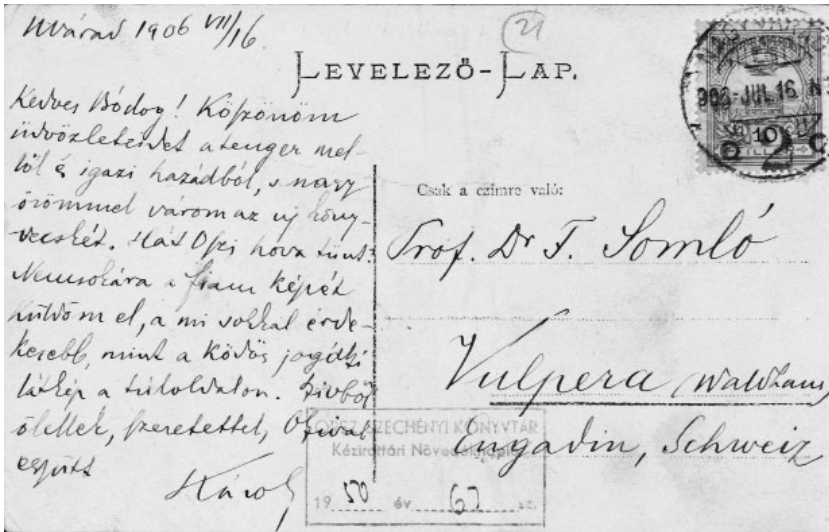 Nvárad 1906 VII/16.
21
LEVELEZŐ-LAP.
Kedves Bódog! Köszönöm
üdvözleteidet a tenger mel-
től és igazi hazádból, s nagy
örömmel várom az uj köny-
vecskét. Hát Opi hova tünt?
Nemsokára a fiam képét
küldöm el, a mi sokkal érde-
kesebb, mint a ködös
látkép a túloldalon. Szívből
ölellek, szeretettel,
együtt
Károly
906 JUL. 16
10
FILLÉR
Csak a czimre való:
Prof. Dr F. Somló
Vulpera (Waldhaus)
Engadin, Schweiz
ORSZ. SZÉCHÉNYI KÖNYVTÁR
Kézirattári Növedéknapló
1950 év 67 sz.